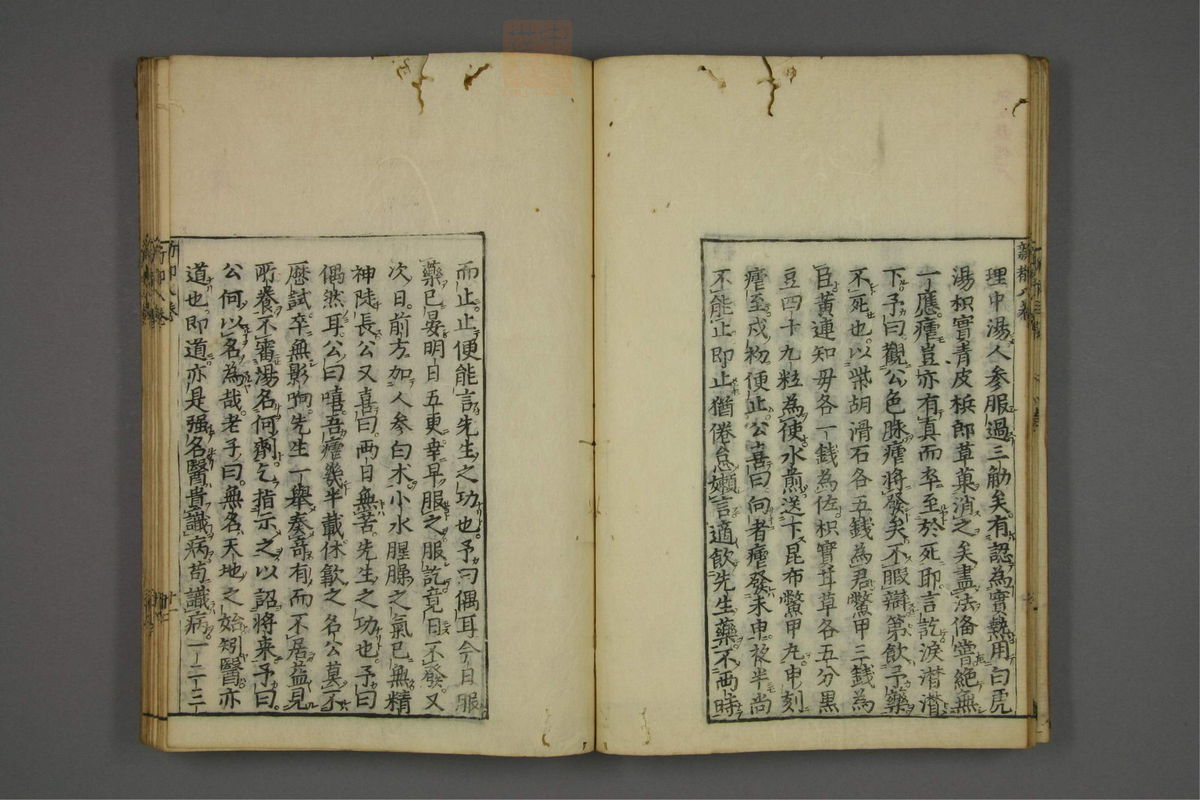 理中湯人参服過三觔矣有認為實熱用白虎
湯枳實青皮檳郎草菓消之矣盡法俻嘗絶無
一應瘧豈亦有真而率至於死耶言訖淚潸潸
下予曰觀公色脉瘧將發矣不暇辯第飲予藥
不死也以柴胡滑石各五錢為君鱉甲三錢為
臣黄連知毋各一錢為佐枳實甘草各五分黒
豆四十九粒為使水煎送下昆布鱉甲丸申刻
瘧至戍初便止公喜曰向者瘧發未申夜半尚
不能止即止猶倦怠嬾言適飲先生藥不两時
而止止便能言先生之功也予曰偶耳今日服
藥已晏明日五更幸早服之服訖竟日不發又
次日前方加人参白术小水腥臊之氣已無精
神陡長公又喜曰两日無苦先生之功也予曰
偶然耳公曰嘻吾瘧幾半載休歙之名公莫不
歴試卒無影响先生一舉奏竒有而不居益見
所養不審湯名何劑乞指示之以詔將来予曰
公何以名為哉老子曰無名天地之始矧醫亦
道也即道亦是强名醫貴識病苟識病一二十三